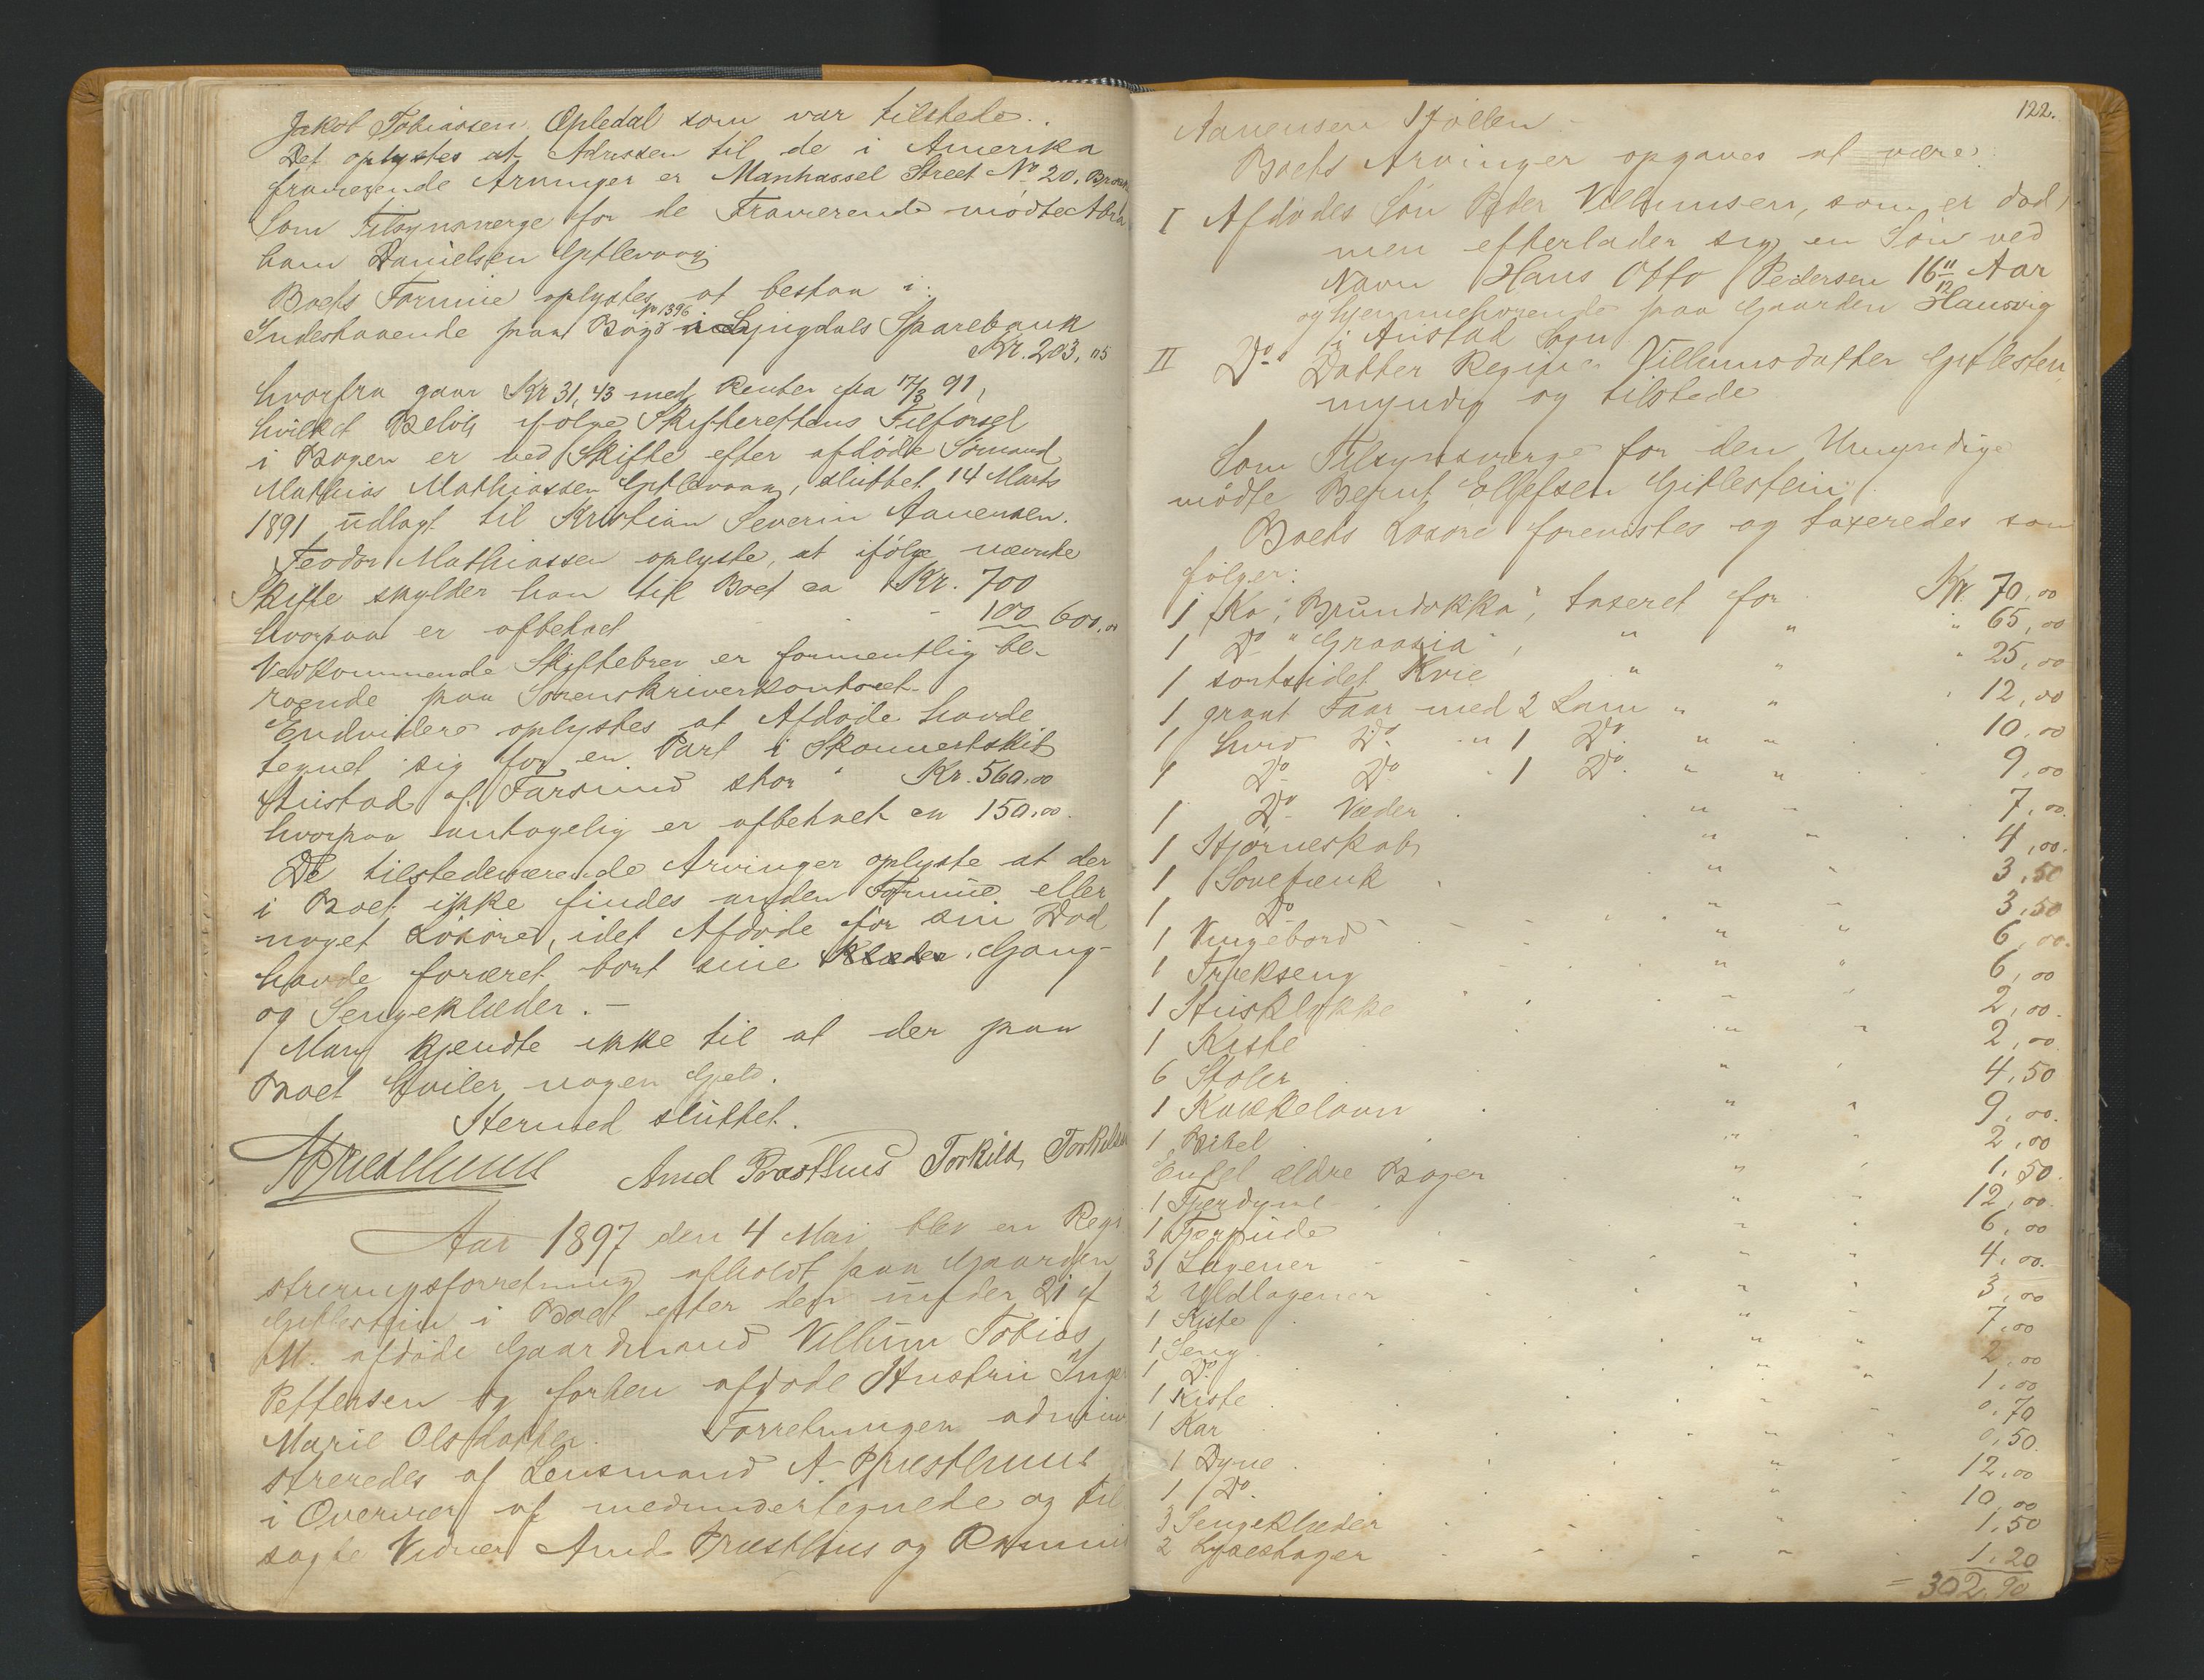 Jakob Tobiassen Opledal som var tilstede..
Det oplystes at Adressen til de i Amerika
fraværende Arvinger er Manhassel Street No 20, Brook
Som Tilsynsværge for de Fraværende mødte Abra
ham Danielsen
Boets Formue oplystes at bestaa i:
Indestaaende paa Bog No 1396 i Lyngdals Sparebank
Kr. 203,05
hvorfra gaar Kr 31,43 med Renter fra 17/3 91,
hvilket Beløb ifølge Skifterettens Tilførsel
i Bogen er ved Skifte efter afdøde Sømand
Mathias Mathiassen, sluttet 14 Marts
1891 udlagt til Kristian Severin Aanensen.
Teodor Mathiassen oplyste, at ifølge nævnte
Skifte skylder han til Boet ca Kr. 700
hvorpaa er afbetalt - 100 600,00
Vedkommende Skiftebrev er formentlig be-
roende paa Sorenskriverkontoret.
Endvidere oplystes at Afdøde havde
tegnet sig for en Part i Skonnertskib
Austad af Farsund stor Kr. 560,00
hvorpaa antagelig er afbetalt ca 150,00.
De tilstedeværende Arvinger oplyste at der
i Boet ikke findes anden Formue eller
noget Løsøre, idet Afdøde før sin Død
havde foræret bort sine Klæder. Gang-
og Sengeklæder. -
Man kjendte ikke til at der paa
Boet hviler nogen Gjeld.
Hermed sluttet.
A Præsthuus Arnd Præsthus Torkild Torkilds
Aar 1897 den 4 Mai blev en Regi
streringsforretning afholdt paa Gaarden
Gitlestein i Boet efter den under 21 f
M. afdøde Gaardmand Villum Tobias
Pettersen og forhen afdøde Hustru Inge
Marie Olsdatter. Forretningen admini
streredes af Lensmand A. Præsthuus
i Overvær af medundertegnede og til
sagte Vidner Arnd Præsthus og
122.
Aanensen
Boets Arvinger opgaves at være:
I Afdødes Søn Peder Villumsen, som er død,
men efterlader sig en Søn ved
Navn Hans Otto Pedersen 16 11/12 Aar
og hjemmehørende paa Gaarden Hausvig
i Austad Sogn
II Do Datter Regine Villumsdatter Gitlesten,
myndig og tilstede
Som Tilsynsværge for den Umyndige
mødte Bernt Ellefsen Gitlestein
Boets Løsøre forevistes og taxeredes som
følger:
1 Ko, "Brundokka", taxeret for Kr. 70,00
1 Do "Graasia", " " " 65,00
1 sortsidet Kvie " " " 25,00
1 graat Faar med 2 Lam " " " 12,00
1 hvid Do " 1 Do " " 10,00
1 Do Do " 1 Do " " 9,00
1 Do Væder " 7,00.
1 Hjørneskab " 4,00.
1 Sovebænk " 3,50
1 Do " 3,50
1 Vingebord " " 6,00.
1 Trækseng " " 6,00
1 Husklokke 2,00.
1 Kiste " " 2,00
6 Stoler " 4,50
1 Kakkelovn " " 9,00.
1 Bibel " 2,00
Endel ældre Bøger " 1,50.
1 Fjerdyne " 12,00.
1 Fjerpude " 6,00
3 Lagener " 4,00.
2 Uldlagener " 3,00
1 Kiste " 7,00
1 Seng " " 2,00
1 Do. " " 1,00
1 Kiste " 0,70
1 Kar " 0,50.
1 Dyne " 12,00
1 Do. " 10,00
3 Sengeklæder " 1,50
2 Lysestager " 1,20
= 302,90